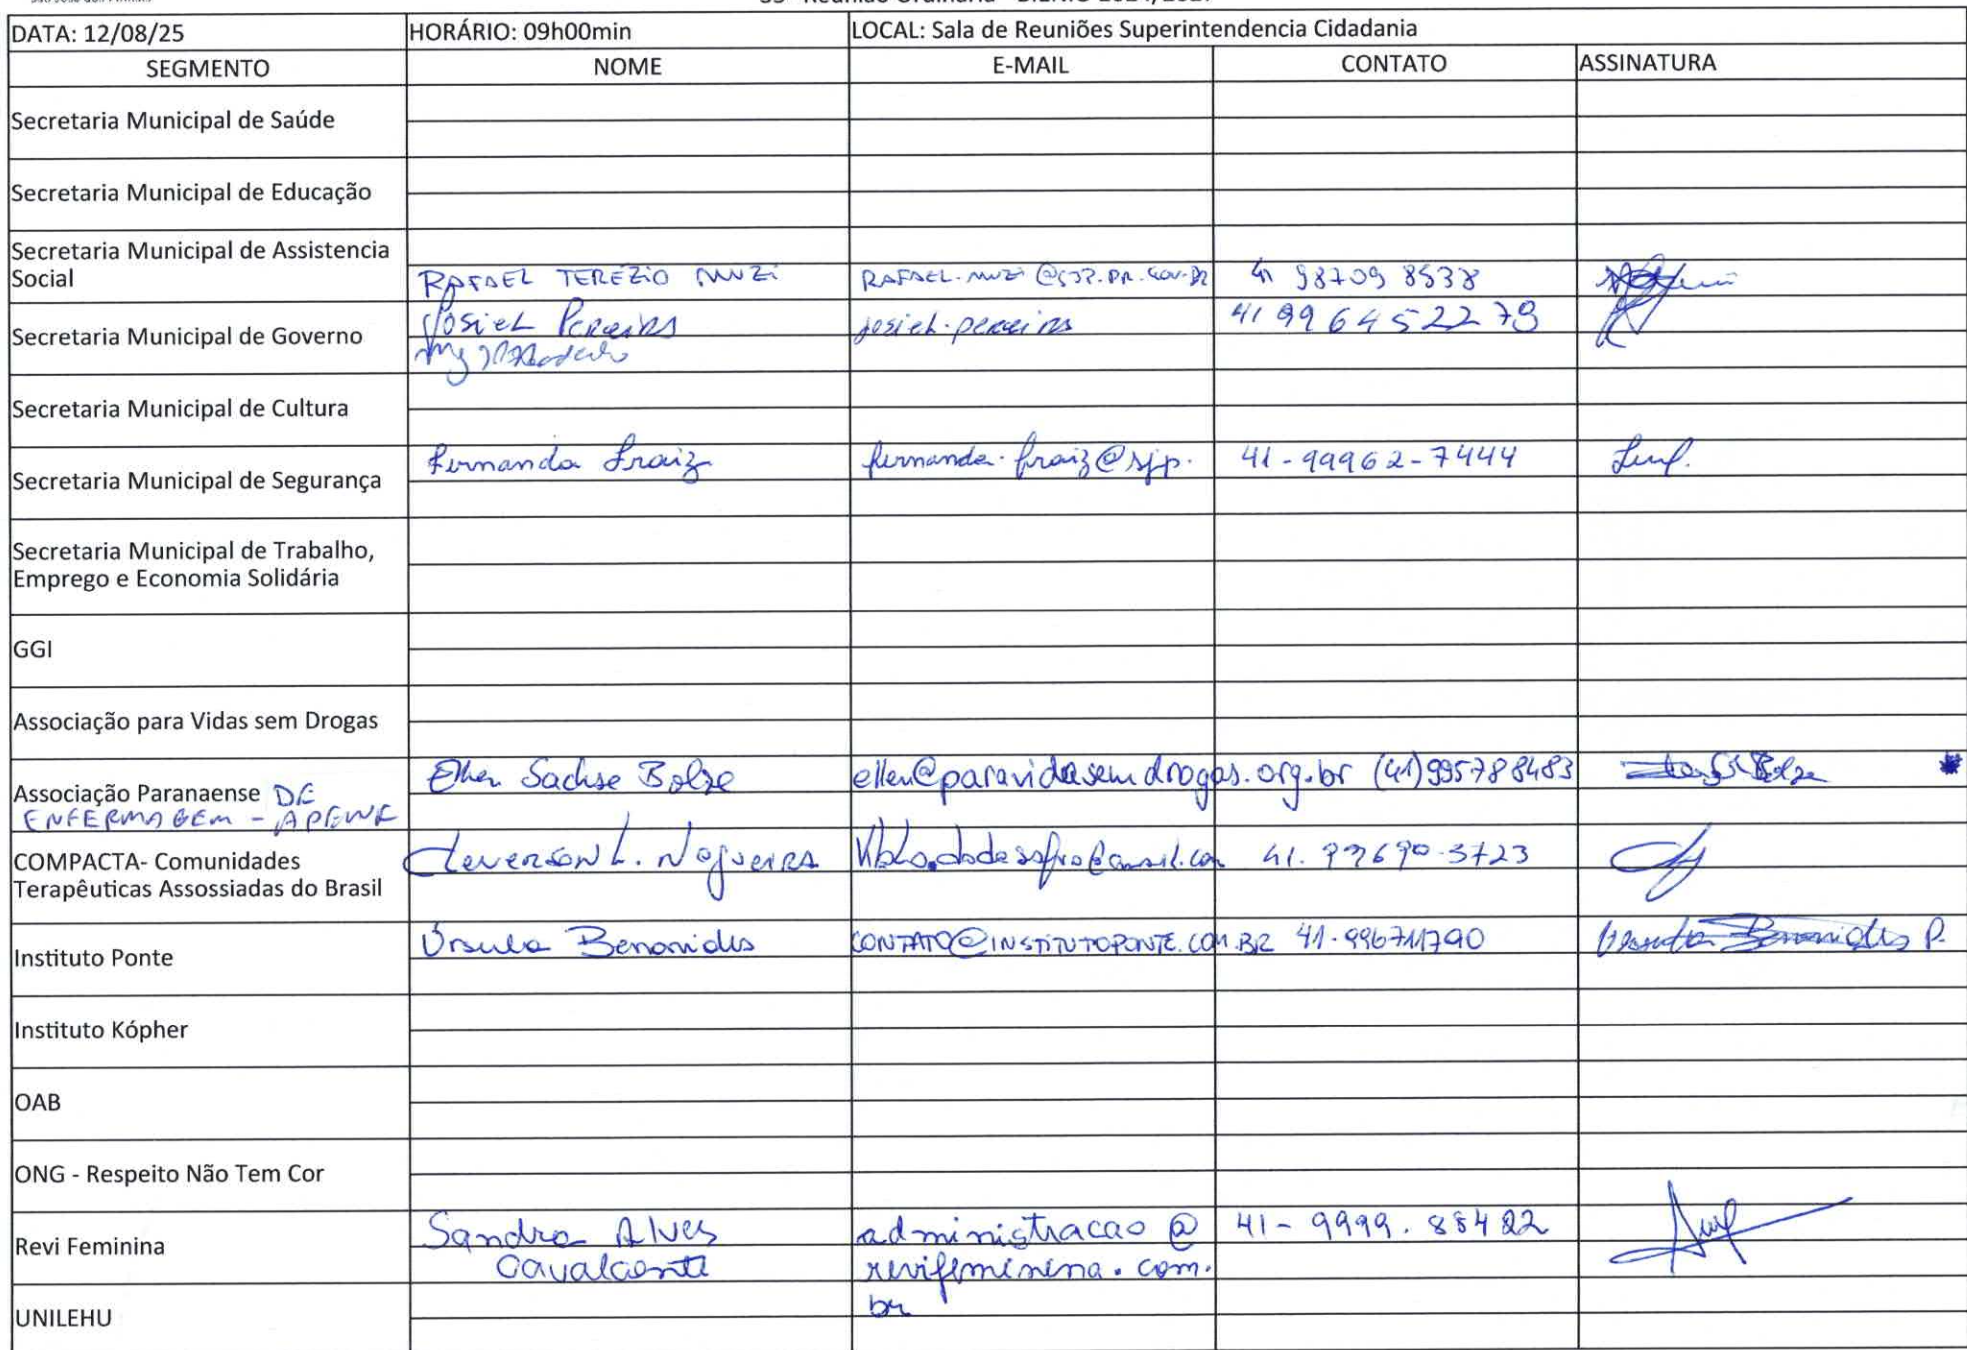 DATA: 12/08/25 HORÁRIO: 09h00min LOCAL: Sala de Reuniões Superintendencia Cidadania
SEGMENTO NOME E-MAIL CONTATO ASSINATURA
Secretaria Municipal de Saúde
Secretaria Municipal de Educação
Secretaria Municipal de Assistencia
Social RAFAEL TEREZIO MUZI RAFAEL.MUZI@SJP.PR.GOV.BR 41 98709 8538
Secretaria Municipal de Governo Josiel Pereira josiel.pereira 41 99645 2279
Secretaria Municipal de Cultura
Secretaria Municipal de Segurança Fernanda Fraiz fernanda.fraiz@sjp. 41-99962-7444
Secretaria Municipal de Trabalho,
Emprego e Economia Solidária
GGI
Associação para Vidas sem Drogas
Associação Paranaense DE Ellen Sachse Bolze ellen@paravidasemdrogas.org.br (41)995788483
ENFERMAGEM -
COMPACTA- Comunidades Cleverson L. Nogueira 41.99690-3723
Terapêuticas Assossiadas do Brasil
Instituto Ponte Úrsula Benonides CONTATO@INSTITUTOPONTE.COM.BR 41-996711790
Instituto Kópher
OAB
ONG - Respeito Não Tem Cor
Revi Feminina Sandra Alves administracao@ 41-9999.88422
Cavalcante revifeminina.com.
br
UNILEHU